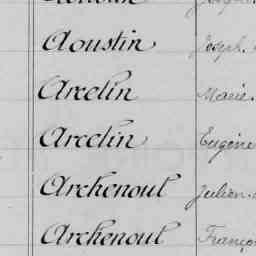 Aoustin Joseph.
Arcelin Marie.
Arcelin Eugène
Archenoul Julien.
Archenoul Franço